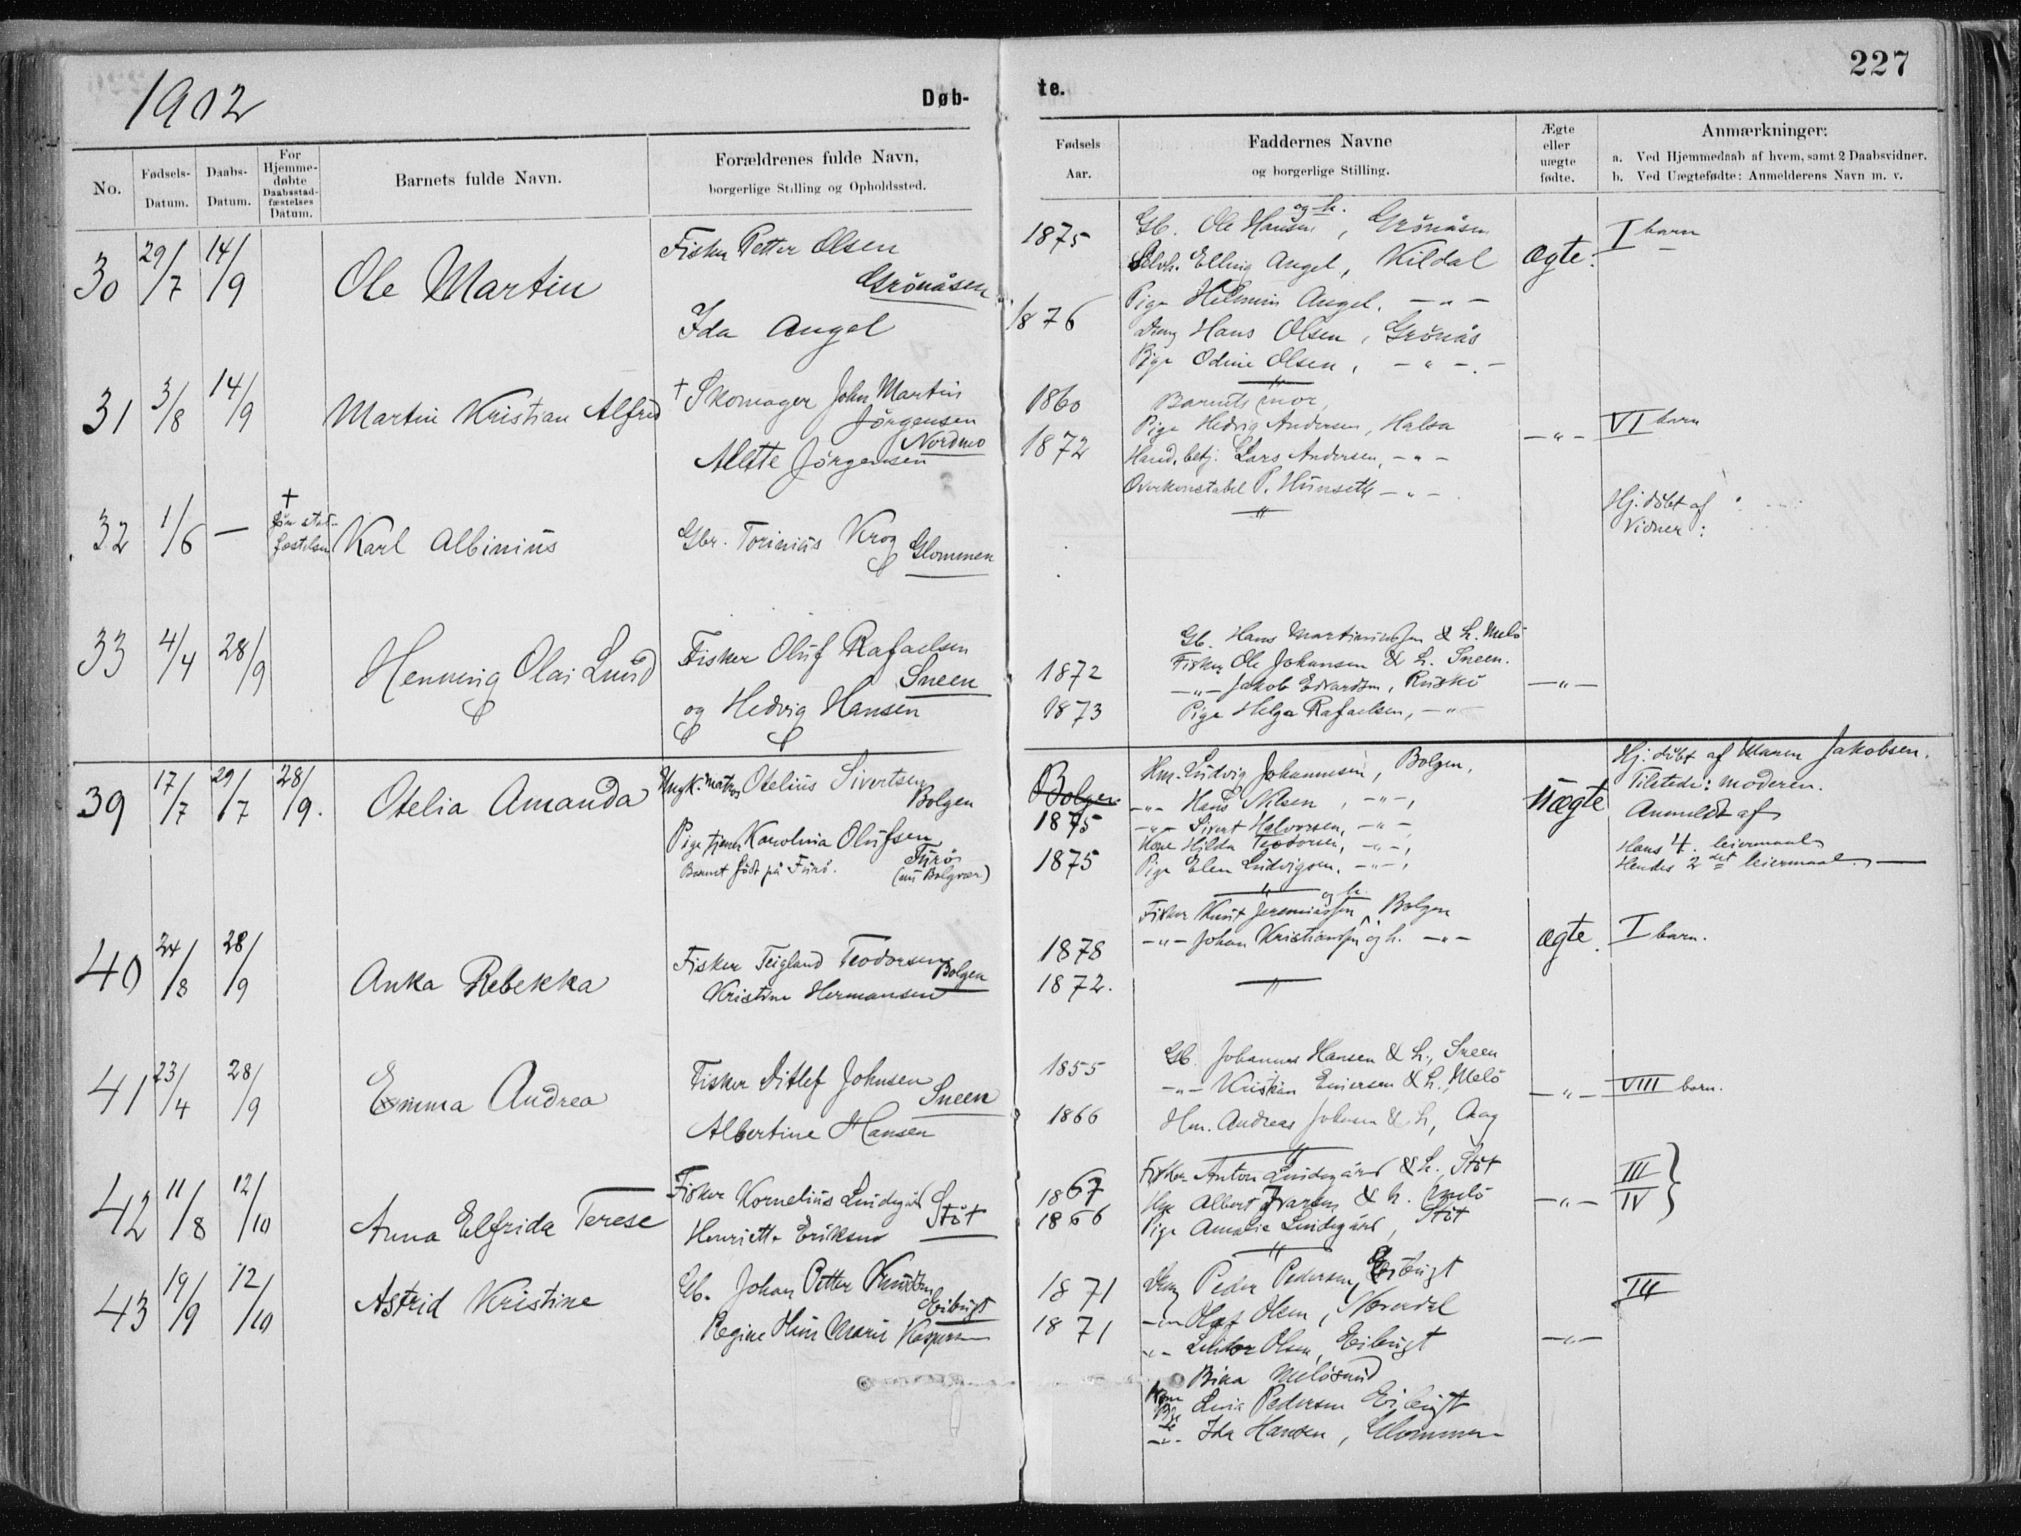 1902
Døb-
te.
227
No.
Fødsels-
Datum.
Daabs-
Datum.
For
Hjemme-
døbte
Daabsstad-
fæstelses
Datum.
Barnets fulde Navn.
Forældrenes fulde Navn,
borgerlige Stilling og Opholdssted.
Fødsels
Aar.
Faddernes Navne
og borgerlige Stilling.
Ægte
eller
uægte
fødte.
Anmærkninger:
a. Ved Hjemmedaab af hvem, samt 2 Daabsvidner.
b. Ved Uægtefødte: Anmelderens Navn m. v.
30 29/7 14/9
Ole Martin
Fisker Petter Olsen
Grönåsen
Ida Angel
1875
1876
Gb. Ole Hansen og h., Grönåsen
Selvh. Elling Angel, Kildal
Pige Helmine Angel. -"-
Ung Hans Olsen, Grönås
Pige Odine Olsen, -"-
"
ægte.
I barn
31 3/8 14/9
Martin Kristian Alfred
† Skomager John Martin
Jørgensen
Nordmo
Alette Jørgensen
1860
1872
Barnets mor,
Pige Hedvig Andersen, Halsa
Hand.betj. Lars Andersen, -"-
Overkonstabel P. Hunseth -"-
"
-"-
VI barn
32 1/6 -
†
før stad-
fæstelsen
Karl Albinius
Gbr. Torinius Krog
Glommen
Hj. döbt af
Vidner:
33 4/4 28/9
Henning Olai Lund
Fisker Oluf Rafaelsen
Sneen
og Hedvig Hansen
1872
1873
Gb. Hans Martinussen & h. Melö
Fisker Ole Johansen & h. Sneen.
-"- Jakob Edvardsen,
Pige Helga Rafaelsen, -"-
-"-
39 17/7 29/7 28/9.
Otelia Amanda
Ungk. matros Otelius Sivertsen
Bolgen
Pige tjener Karolina Olufsen
Furö
Barnet født på Furö. (nu Bolgvær)
Bolgen
1875
1875
Hm. Ludvig Johannesen, Bolgen,
-"- Hans Nilsen, -"-,
-"- Sivert Halvorsen, -"-,
Kone Hilda Teodorsen, -"-,
Pige Elen Ludvigsen. -"-,
"
Uægte
Hj. döbt af Maren Jakobsen.
Tilstede: moderen.
Anmeldt af
Hans 4. leiermaal
Hendes 2det leiermaal
40 24/8 28/9
Anka Rebekka
Fisker Teigland Teodorsen
Bolgen
Kristine Hermansen
1878
1872.
Fisker Knut Jeremiassen og h., Bolgen
-"- Johan Kristiansen og h. -"-
"
ægte.
I barn.
41 23/4 28/9
Emma Andrea
Fisker Ditlef Johnsen
Sneen
Albertine Hansen
1855
1866
Gb. Johannes Hansen & h., Sneen
-"- Kristian Einersen & h., Melö
Hm. Andreas Johnsen & h, Aag
"
-"-
VIII barn.
42 11/8 12/10
Anna Elfrida Terese
Fisker Kornelius Lindegård
Stöt
Henriette Eriksen
1867
1866
Fisker Anton Lindegård & h., Stöt
Albert Ivarsen & h. Melö
Pige Amalie Lindegård, Stöt
"
-"-
III
IV }
43 19/9 12/10
Astrid Kristine
Gb. Johan Petter Knudsen
Eibugt
Regine Marie
1871
1871
Ung Peder Pedersen, Eibugt
-"- Olaf Olsen,
-"- Olsen, Eibugt
Melösund
Pedersen Eibugt
-"- Ida Hansen, Glommen
-"-
III